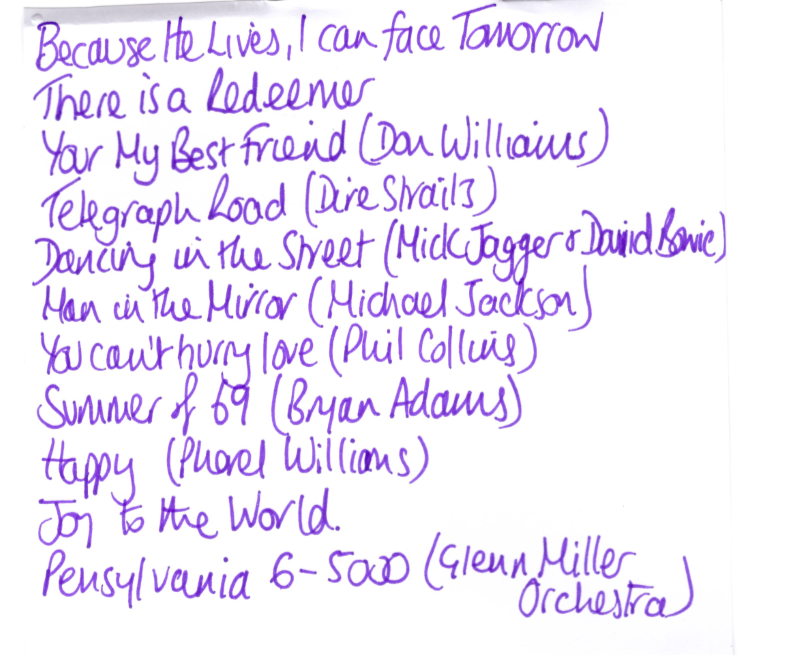 Because He Lives, I can face Tomorrow
There is a Redeemer
Your My Best Friend (Don Williams)
Telegraph Road (Dire Straits)
Dancing in the Street (Mick Jagger & David Bowie)
Man in the Mirror (Michael Jackson)
You can't hurry love (Phil Collins)
Summer of 69 (Bryan Adams)
Happy (Pharel Williams)
Joy to the World.
Pensylvania 6-5000 (Glenn Miller
Orchestra)